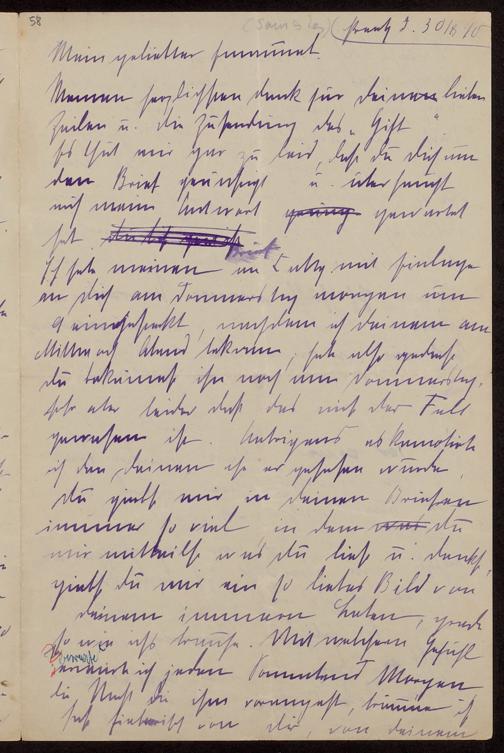 58
(Samstag) Kreutz 3. 30/8 90
Mein geliebter
Meinen herzlichsten Dank für deine lieben
Zeilen u. die Zusendung des „Gift“
Es thut mir gar zu leid, daß du dich um
den Brief u. überhaupt
auf meine Antwort gewartet
hast.
Ich habe meinen Brief an mit Einlage
an dich am Donnerstag morgen um
9 eingesteckt, nachdem ich deinen am
Mittwoch Abend bekam, habe also gedacht
du bekämest ihn noch am Donnerstag,
sehe aber leider daß das nicht der Fall
gewesen ist. Uebrigens
ich den deinen ehe er gesehen wurde,
du giebst mir in deinen Briefen
immer so viel in dem du
mir mittheilst was du liest u. denkst,
giebst du mir ein so liebes Bild von
deinem inneren Leben, gerade
so wie ichs brauche. Mit welchem Gefühl
erwarte ich jeden Sonnabend Morgen
die Nacht die ihm vorangeht, träume ich
fast von dir, von deinem